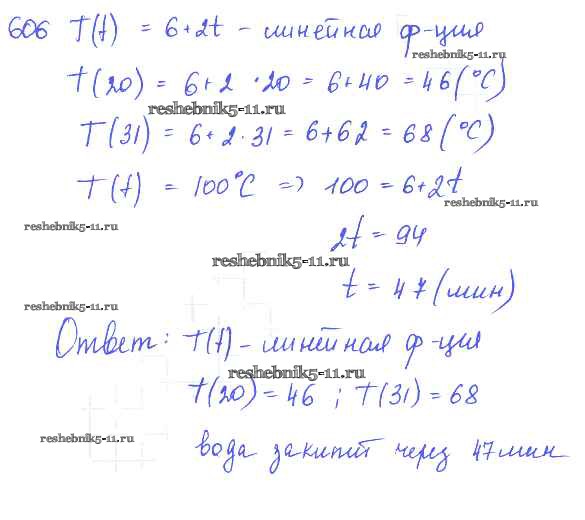 606 T(t) = 6+2t - линейная ф-ция
reshebnik5-11.ru
T(20) = 6+2·20 = 6+40 = 46(°C)
reshebnik5-11.ru
T(31) = 6+2·31 = 6+62 = 68(°C)
T(t) = 100°C => 100 = 6+2t
reshebnik5-11.ru
reshebnik5-11.ru
2t = 94
reshebnik5-11.ru
t = 47(мин)
reshebnik5-11.ru
Ответ: T(t) - линейная ф-ция
reshebnik5-11.ru
T(20) = 46 ; T(31) = 68
reshebnik5-11.ru
вода закипит через 47 мин